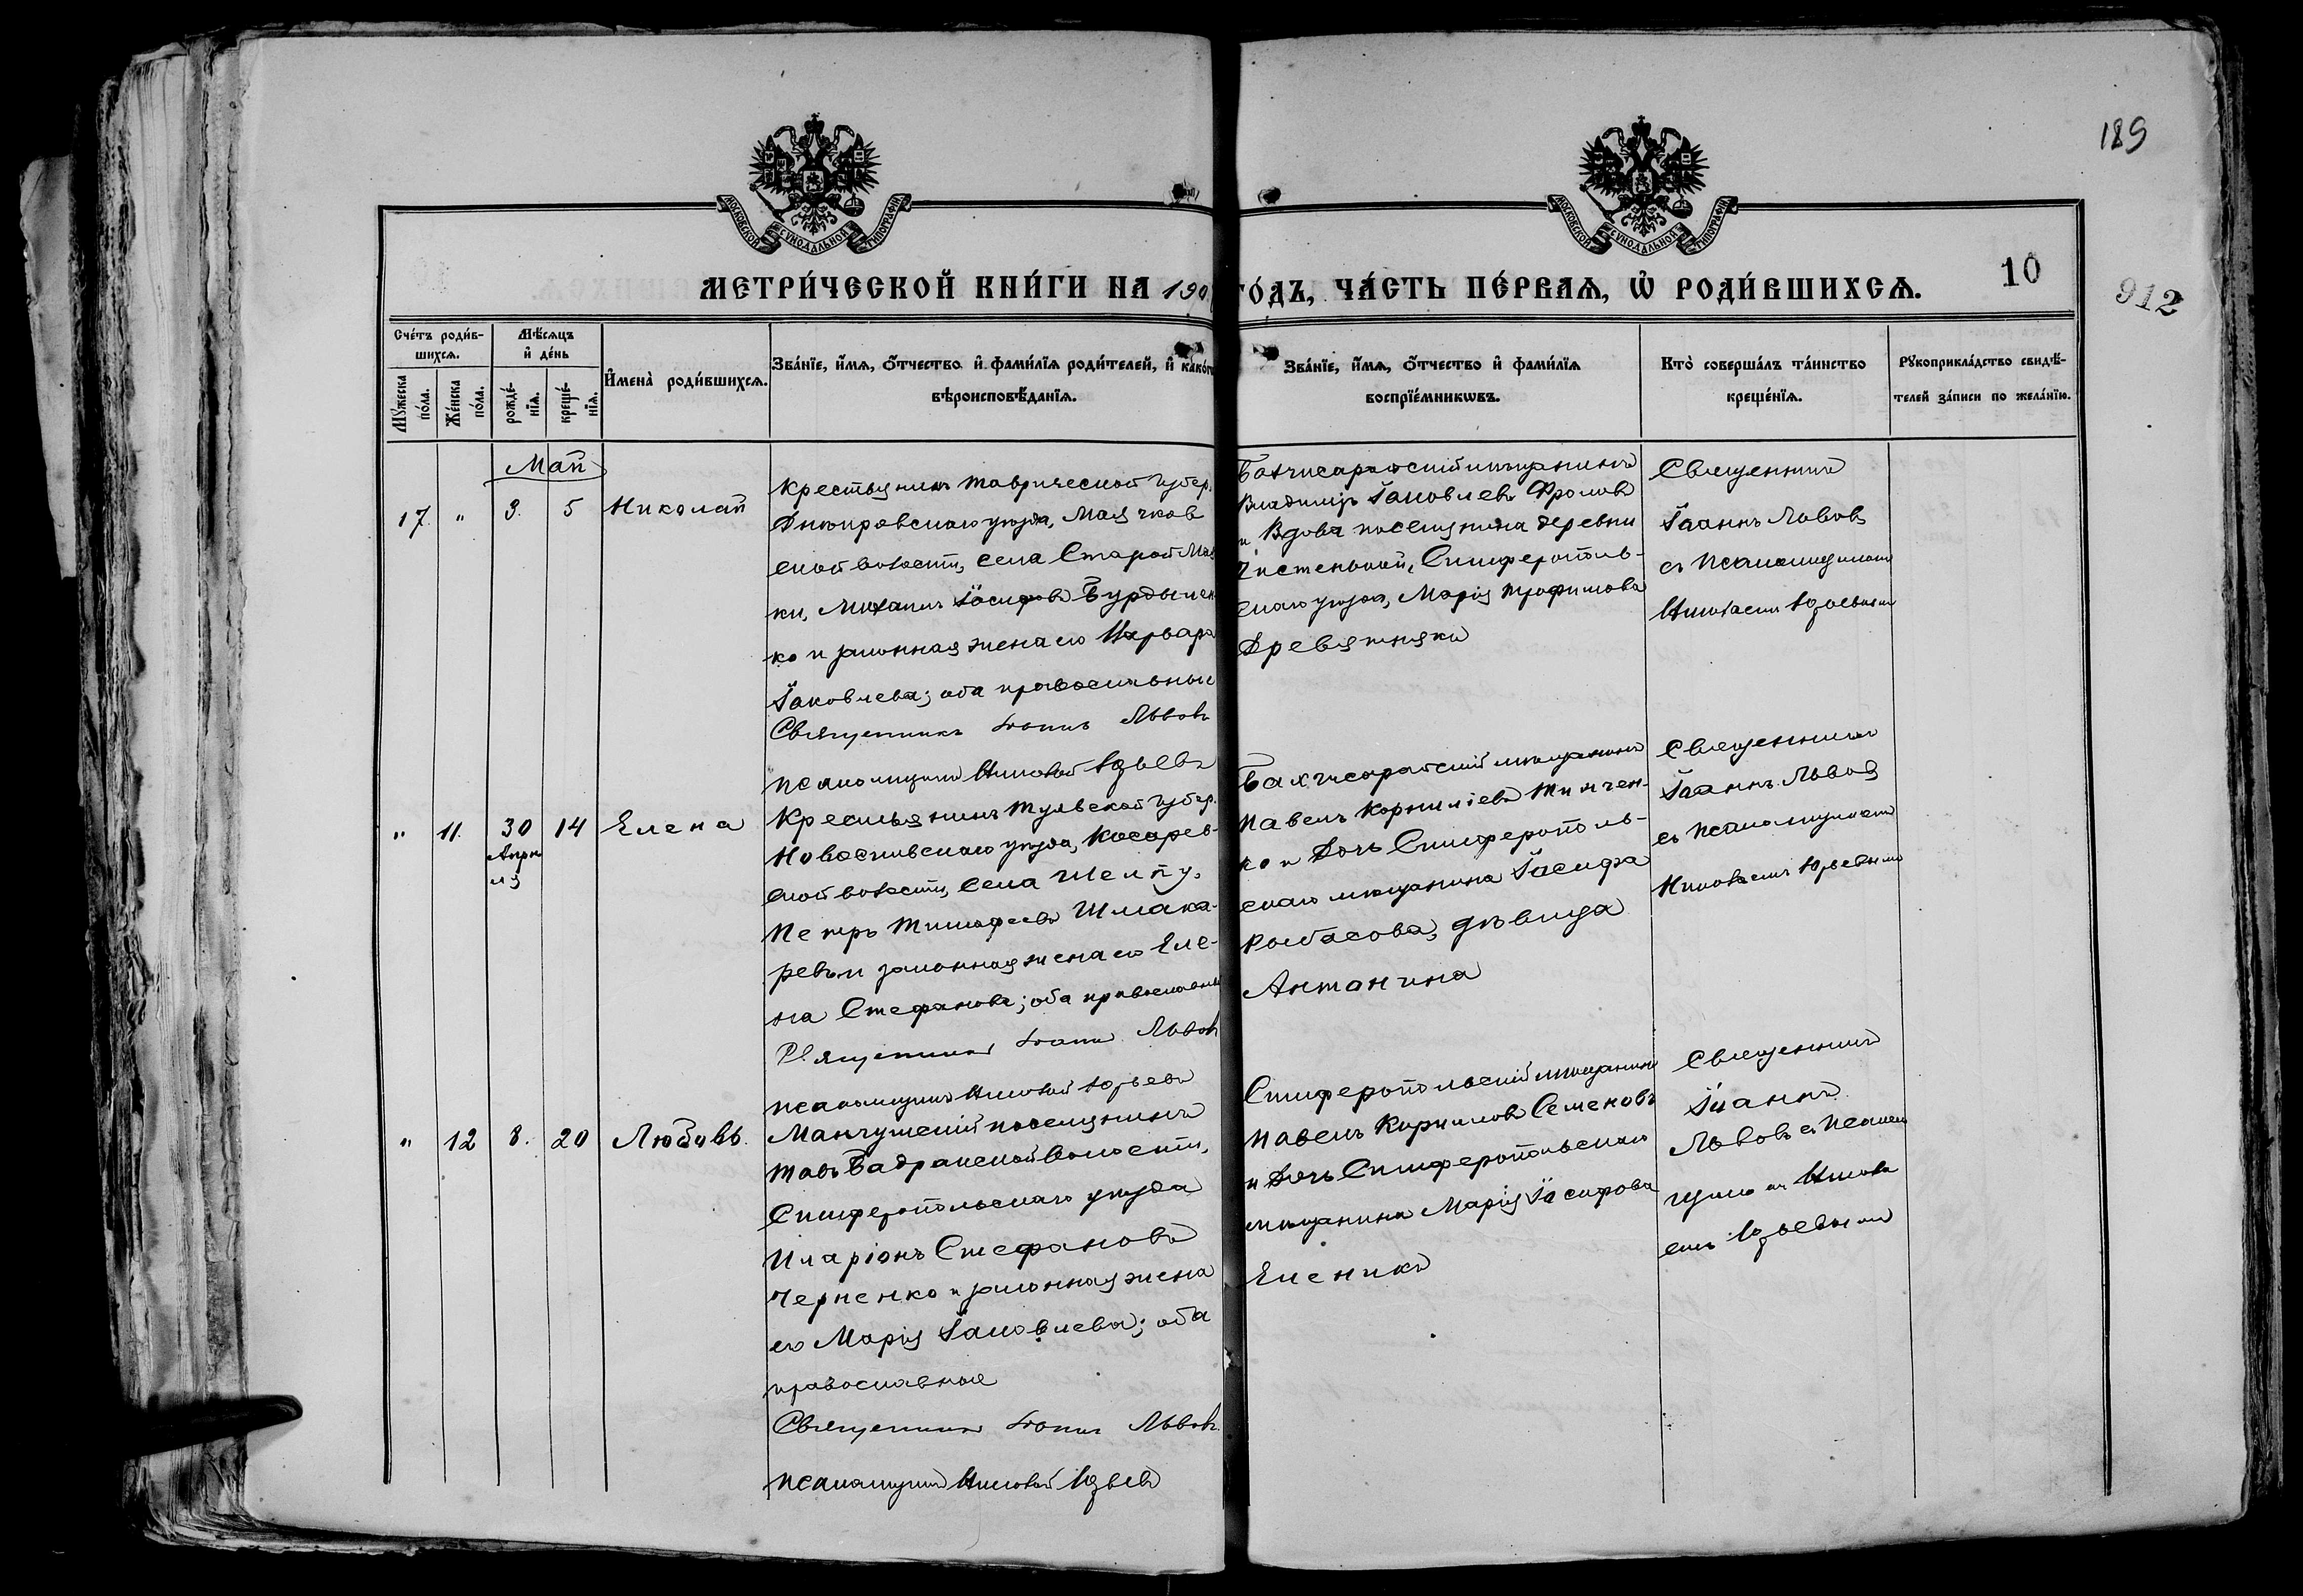 189
МОСКОВСКОЙ СѴНОДАЛЬНОЙ ТИПОГРАФІИ
МОСКОВСКОЙ СѴНОДАЛЬНОЙ ТИПОГРАФІИ
МЕТРИ́ЧЕСКОЙ КНИ́ГИ НА 190
ГО́ДЪ, ЧА́СТЬ ПЕ́РВАѦ, Ѡ҆ РОДИ́ВШИХСѦ.
10
912
Сче́тъ роди́в-
шихсѧ.
Мꙋ́жеска
по́ла.
Же́нска
по́ла.
Мѣ́сѧцъ
и҆ де́нь
рожде́-
нїѧ.
креще́-
нїѧ.
И҆мена̀ роди́вшихсѧ.
Зва́нїе, и҆́мѧ, ѻ҆́тчество и҆ фами́лїѧ роди́телей, и҆ како́гѡ
вѣроисповѣ́данїѧ.
Зва́нїе, и҆́мѧ, ѻ҆́тчество и҆ фами́лїѧ
воспрїе́мникѡвъ.
Кто̀ соверша́лъ та́инство
креще́нїѧ.
Рꙋкоприкла́дство свидѣ́-
телей за́писи по жела́нїю.
Май
17. " 3. 5 Николай
Крестьянинъ Таврической губер.
Днѣпровскаго уѣзда, Маячков
ской волости, села Старой Мая
ки, Михаилъ Іосифовъ Бурдымен
ко и законная жена его Варвара
Іаковлева; оба православные
Священникъ Іоаннъ Львовъ
Псаломщикъ Николай Юрьевъ
Бахчисарайскій мѣщанинъ
Владимiръ Іаковлевъ Фроловъ
и Вдова поселянина деревни
Чистенькой, Симферополь-
скаго уѣзда, Марія Трофимова
Древятняки
Священникъ
Іоаннъ Львовъ
съ Псаломщикомъ
Николаемъ Юрьевымъ
" 11. 30 14 Елена
Апрѣ
ля
Крестьянинъ Тульской губер.
Новосильскаго уѣзда, Косарев-
ской волости, села
Петръ Тимофеевъ Шмака-
ревъ и законная жена его Еле-
на Стефанова; оба православные
Священникъ Іоаннъ Львовъ
Псаломщикъ Николай Юрьевъ
Бахчисарайскій мѣщанинъ
Павелъ Корниліевъ Тимчен-
ко и дочь Симферополь-
скаго мѣщанина Іосифа
Колбасова, дѣвица
Антонина
Священникъ
Іоаннъ Львовъ
съ Псаломщикомъ
Николаемъ Юрьевымъ
" 12 8. 20 Любовь.
Мангушскій поселянинъ
тожъ Бадракской Волости,
Симферопольскаго уѣзда
Иларіонъ Стефановъ
Черненко и законная жена
его Марія Іаковлева; оба
православные
Священникъ Іоаннъ Львовъ.
Псаломщикъ Николай Юрьевъ
Симферопольскій мѣщанинъ
Павелъ Кирилловъ Семеновъ
и дочь Симферопольскаго
мѣщанина Марія Іосифова
Еленика
Священникъ
Іоаннъ
Львовъ съ Псалом
щикомъ Никола
емъ Юрьевымъ